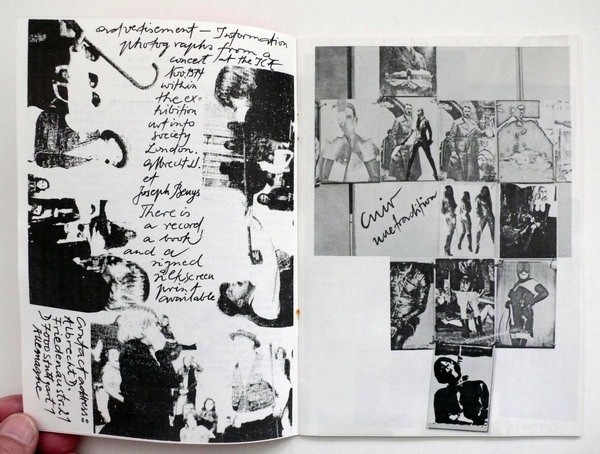 advertisement — Information
photographs from a
concert at the ICA
Nov. 1974
within
the ex-
hibition
art into
society
London.
Albrecht D.
et
Joseph Beuys
There is
a record,
a book
and a
signed
silkscreen
print
available
Contact address:
Albrecht D.
D 7000 Stuttgart 1
Allemagne
cuir
une tradition